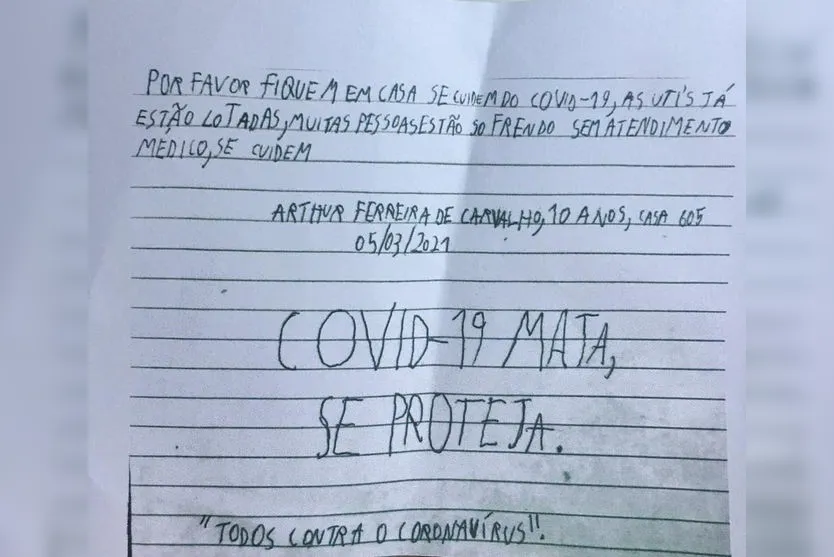 POR FAVOR FIQUEM EM CASA SE CUIDEM DO COVID-19, AS UTI'S JÁ
ESTÃO LOTADAS, MUITAS PESSOAS ESTÃO SO FRENDO SEM ATENDIMENTO
MEDICO, SE CUIDEM
ARTHUR FERREIRA DE CARVALHO, 10 ANOS, CASA 605
05/03/2021
COVID-19 MATA,
SE PROTEJA.
"TODOS CONTRA O CORONAVÍRUS".